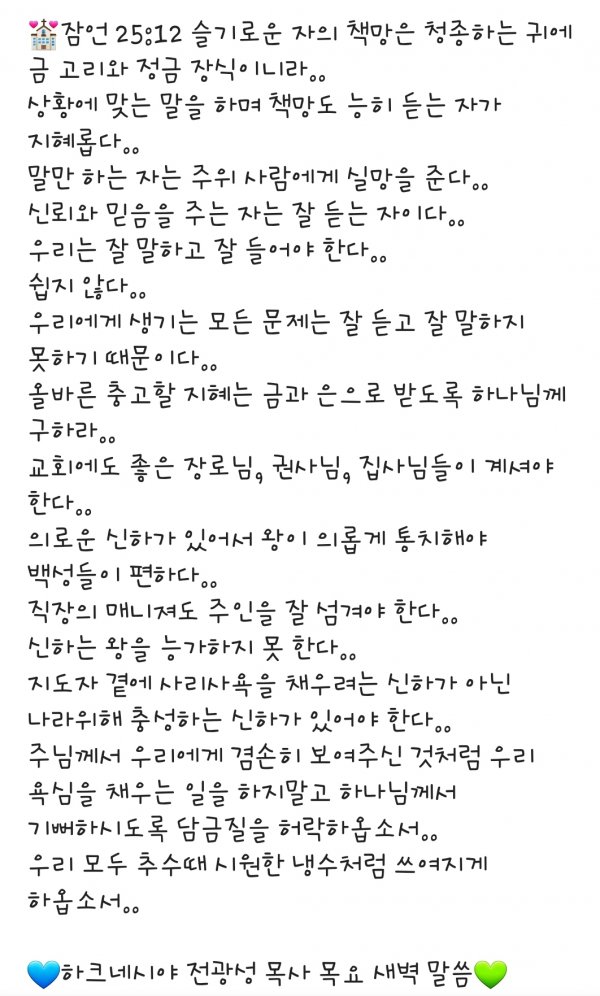 💒잠언 25:12 슬기로운 자의 책망은 청종하는 귀에
금 고리와 정금 장식이니라。。
상황에 맞는 말을 하며 책망도 능히 듣는 자가
지혜롭다。。
말만 하는 자는 주위 사람에게 실망을 준다。。
신뢰와 믿음을 주는 자는 잘 듣는 자이다。。
우리는 잘 말하고 잘 들어야 한다。。
쉽지 않다。。
우리에게 생기는 모든 문제는 잘 듣고 잘 말하지
못하기 때문이다。。
올바른 충고할 지혜는 금과 은으로 받도록 하나님께
구하라。。
교회에도 좋은 장로님, 권사님, 집사님들이 계셔야
한다。。
의로운 신하가 있어서 왕이 의롭게 통치해야
백성들이 편하다。。
직장의 매니져도 주인을 잘 섬겨야 한다。。
신하는 왕을 능가하지 못 한다。。
지도자 곁에 사리사욕을 채우려는 신하가 아닌
나라위해 충성하는 신하가 있어야 한다。。
주님께서 우리에게 겸손히 보여주신 것처럼 우리
욕심을 채우는 일을 하지말고 하나님께서
기뻐하시도록 담금질을 허락하옵소서。。
우리 모두 추수때 시원한 냉수처럼 쓰여지게
하옵소서。。
💙하크네시야 전광성 목사 목요 새벽 말씀💚